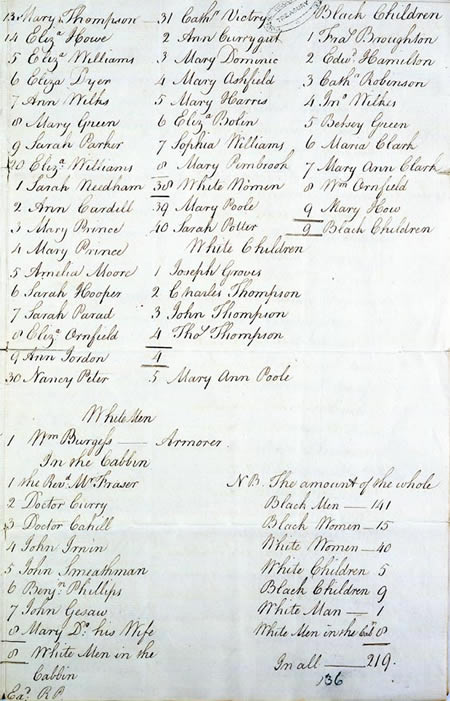 13 Mary Thompson
14 Eliza Howe
5 Eliza Williams
6 Eliza Dyer
7 Ann Wilks
8 Mary Green
9 Sarah Parker
20 Eliza Williams
1 Sarah Needham
2 Ann Cardell
3 Mary Prince
4 Mary Prince
5 Amelia Moore
6 Sarah Hooper
7 Sarah Parad
8 Eliza Ornfield
9 Ann Jordon
30 Nancy Peter
31 Cathe Victry
2 Ann Currygut
3 Mary Dominic
4 Mary Ashfield
5 Mary Harris
6 Eliza Bolin
7 Sophia Williams
8 Mary Pembrook
38 White Women
39 Mary Poole
40 Sarah Potter
White Children
1 Joseph Groves
2 Charles Thompson
3 John Thompson
4 Thos Thompson
4
5 Mary Ann Poole
TREASURY
Black Children
1 Fras Broughton
2 Edwd Hamilton
3 Catha Robinson
4 Jno Wilkes
5 Betsey Green
6 Maria Clark
7 Mary Ann Clark
8 Wm Ornfield
9 Mary How
9 Black Children
White Men
1 Wm Burgess — Armorer
In the Cabbin
1 the Revd Mr Fraser
2 Doctor Curry
3 Doctor Cahill
4 John Irwin
5 John Smeathman
6 Benjn Phillips
7 John Gesaw
8 Mary Do his Wife
8 White Men in the
Cabbin
Exd RP
NB. The amount of the whole
Black Men — 141
Black Women — 15
White Women — 40
White Children 5
Black Children 9
White Man — 1
White Men in the Cabn 8
In all — 219.
136